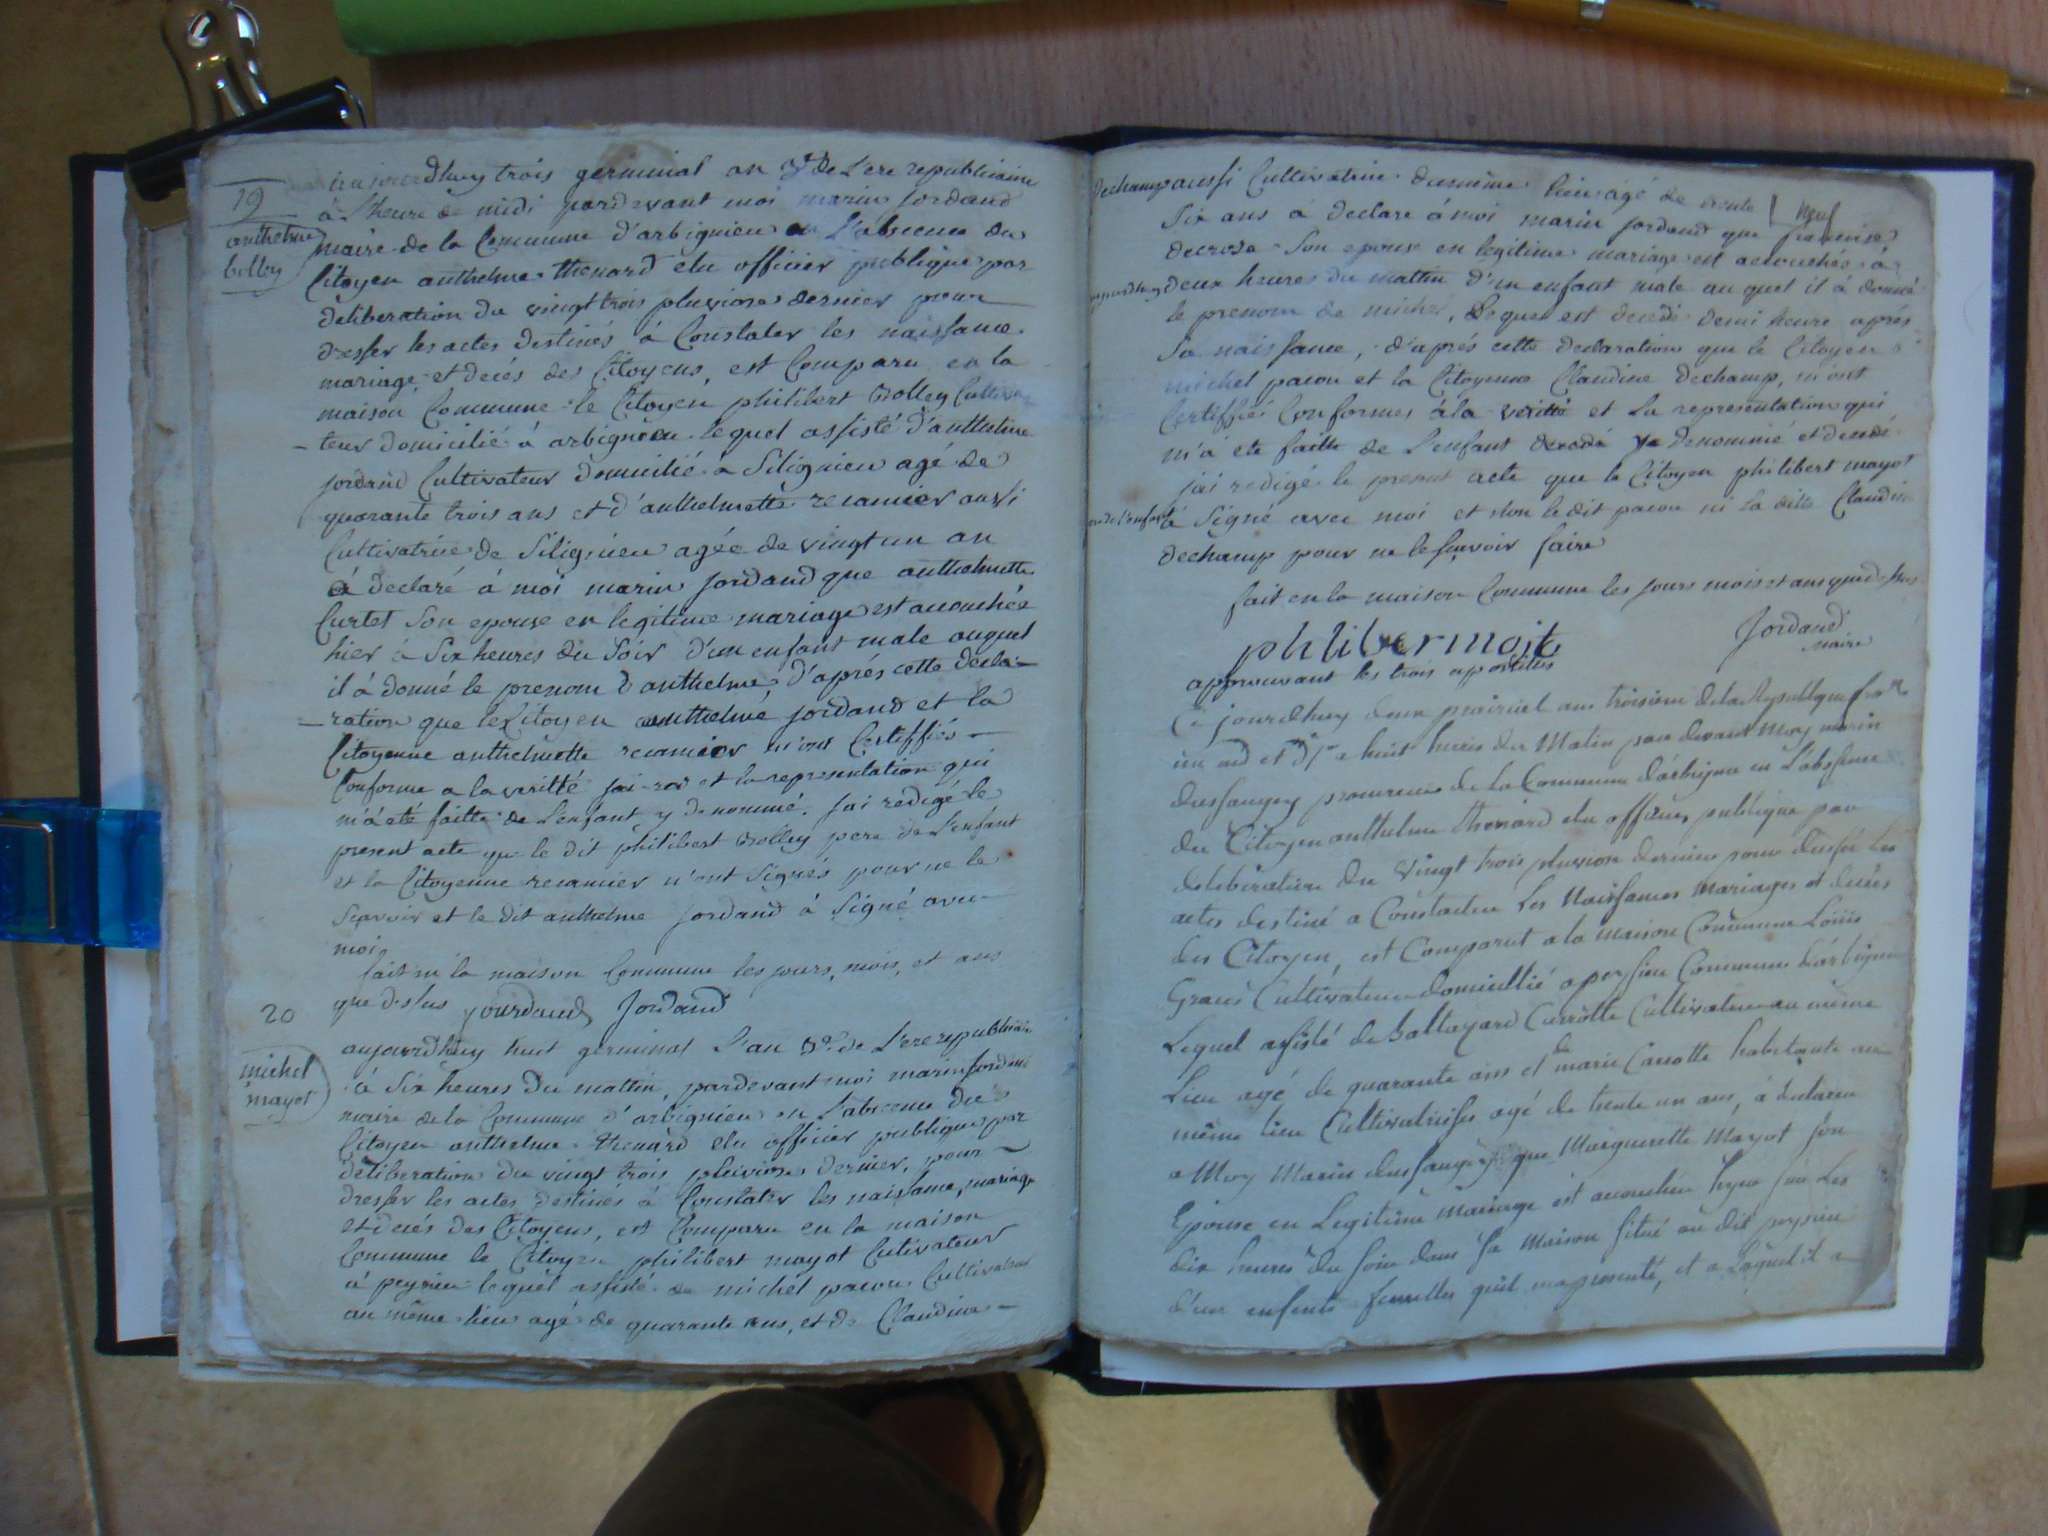 19
anthelme
bolley
aujourdhuy trois germinal an 3e de L'ere republicaine
à L'heure de midi pardevant moi marin Jordand
maire de la Commune d'arbignieu en L'absence du
Citoyen anthelme thenard elu officier publique par
deliberation du vingt trois pluviose dernier pour
dresser les actes destinés à Constater les naissance
mariage et decés des Citoyens, est Comparu en la
maison Commune le Citoyen philibert Bolley Cultiva
-teur domicilié à arbignieu lequel assisté d'anthelme
jordand Cultivateur domicilié à Silignieu agé de
quarante trois ans et d'anthelmette recamier aussi
Cultivatrice de Silignieu agée de vingt un an
à declaré à moi marin Jordand que anthelmette
Curtet Son epouse en legitime mariage est acouchée
hier à Six heures du Soir d'un enfant male auquel
il à donné le prenom d'anthelme, d'aprés cette decla-
-ration que le Citoyen anthelme jordand et la
Citoyenne anthelmette recamier m'ont Certiffiés
Conforme a la veritté et la representation qui
m'à eté faitte de L'enfant y denommé. j'ai redigé le
present acte que le dit philibert Bolley pere de L'enfant
et la Citoyenne recamier n'ont Signés pour ne le
Sçavoir et le dit anthelme Jordand à Signé avec
moi
fait en la maison Commune les jours, mois, et ans
que dessus yourdand Jordand
20
michel
mayot
aujourdhuy huit germinal L'an 3e de L'ere republicaine
à Six heures du mattin, pardevant moi marin Jordand
maire de la Commune d'arbignieu en L'absence du
Citoyen anthelme thenard elu officier publique par
deliberation du vingt trois pluviose dernier, pour
dresser les actes destinés à Constater les naissance, mariage
et decés des Citoyens, est Comparu en la maison
Commune le Citoyen philibert mayot Cultivateur
à peyrieu lequel assisté de michel pacou Cultivateur
au même lieu agé de quarante ans, et de Claudine
dechamp aussi Cultivatrice du même lieu agé de trente neuf
Six ans à declaré à moi marin jordand que francoise
decroso Son epouse en legitime mariage est acouchée à
aujourdhuy deux heures du mattin d'un enfant male au quel il à donné
le prenom de michel, Lequel est decedé demi heure aprés
Sa naissance, d'aprés cette declaration que le Citoyen
michel pacou et la Citoyenne Claudine dechamp, m'ont
Certiffié Conformes à la veritté et La representation qui
m'à eté faitte de L'enfant denommé et decedé
j'ai redigé le present acte que le Citoyen philibert mayot
pere de l'enfant à Signé avec moi et non le dit pacou ni la ditte Claudine
dechamp pour ne le sçavoir faire
fait en la maison Commune les jours mois et ans que dessus
phlibermoit
Jordand
maire
approuvant les trois apostilles
Ce jourdhuy deux prairial ans troisieme de la Republique fran
une et a huit heures du Matin par devant Moy marin
dufaugey procureur de la Commune d'arbignieu en L'absence
du Citoyen anthelme thenard elu officier publique par
deliberation du Vingt trois pluviose dernier pour dresser les
actes destiné a Constater Les Naissances Mariages et decés
des Citoyen, est Comparut a la maison Commune Louis
Cultivateur domicillié a peysieu Commune d'arbignieu
Lequel assisté de baltazard Carrotte Cultivateur au même
Lieu agé de quarante ans et de marie Carrotte habitante au
même lieu Cultivatrice agé de trente un ans, à declaré
a Moy Marin dufaugey que Marguerite Mayot son
Epouse en Legitime Mariage est acouchée hyer sur Les
dix heures du soir dans Sa Maison situé au dit peysieu
d'un enfants femelles quil ma presenté, et a Lequel il a